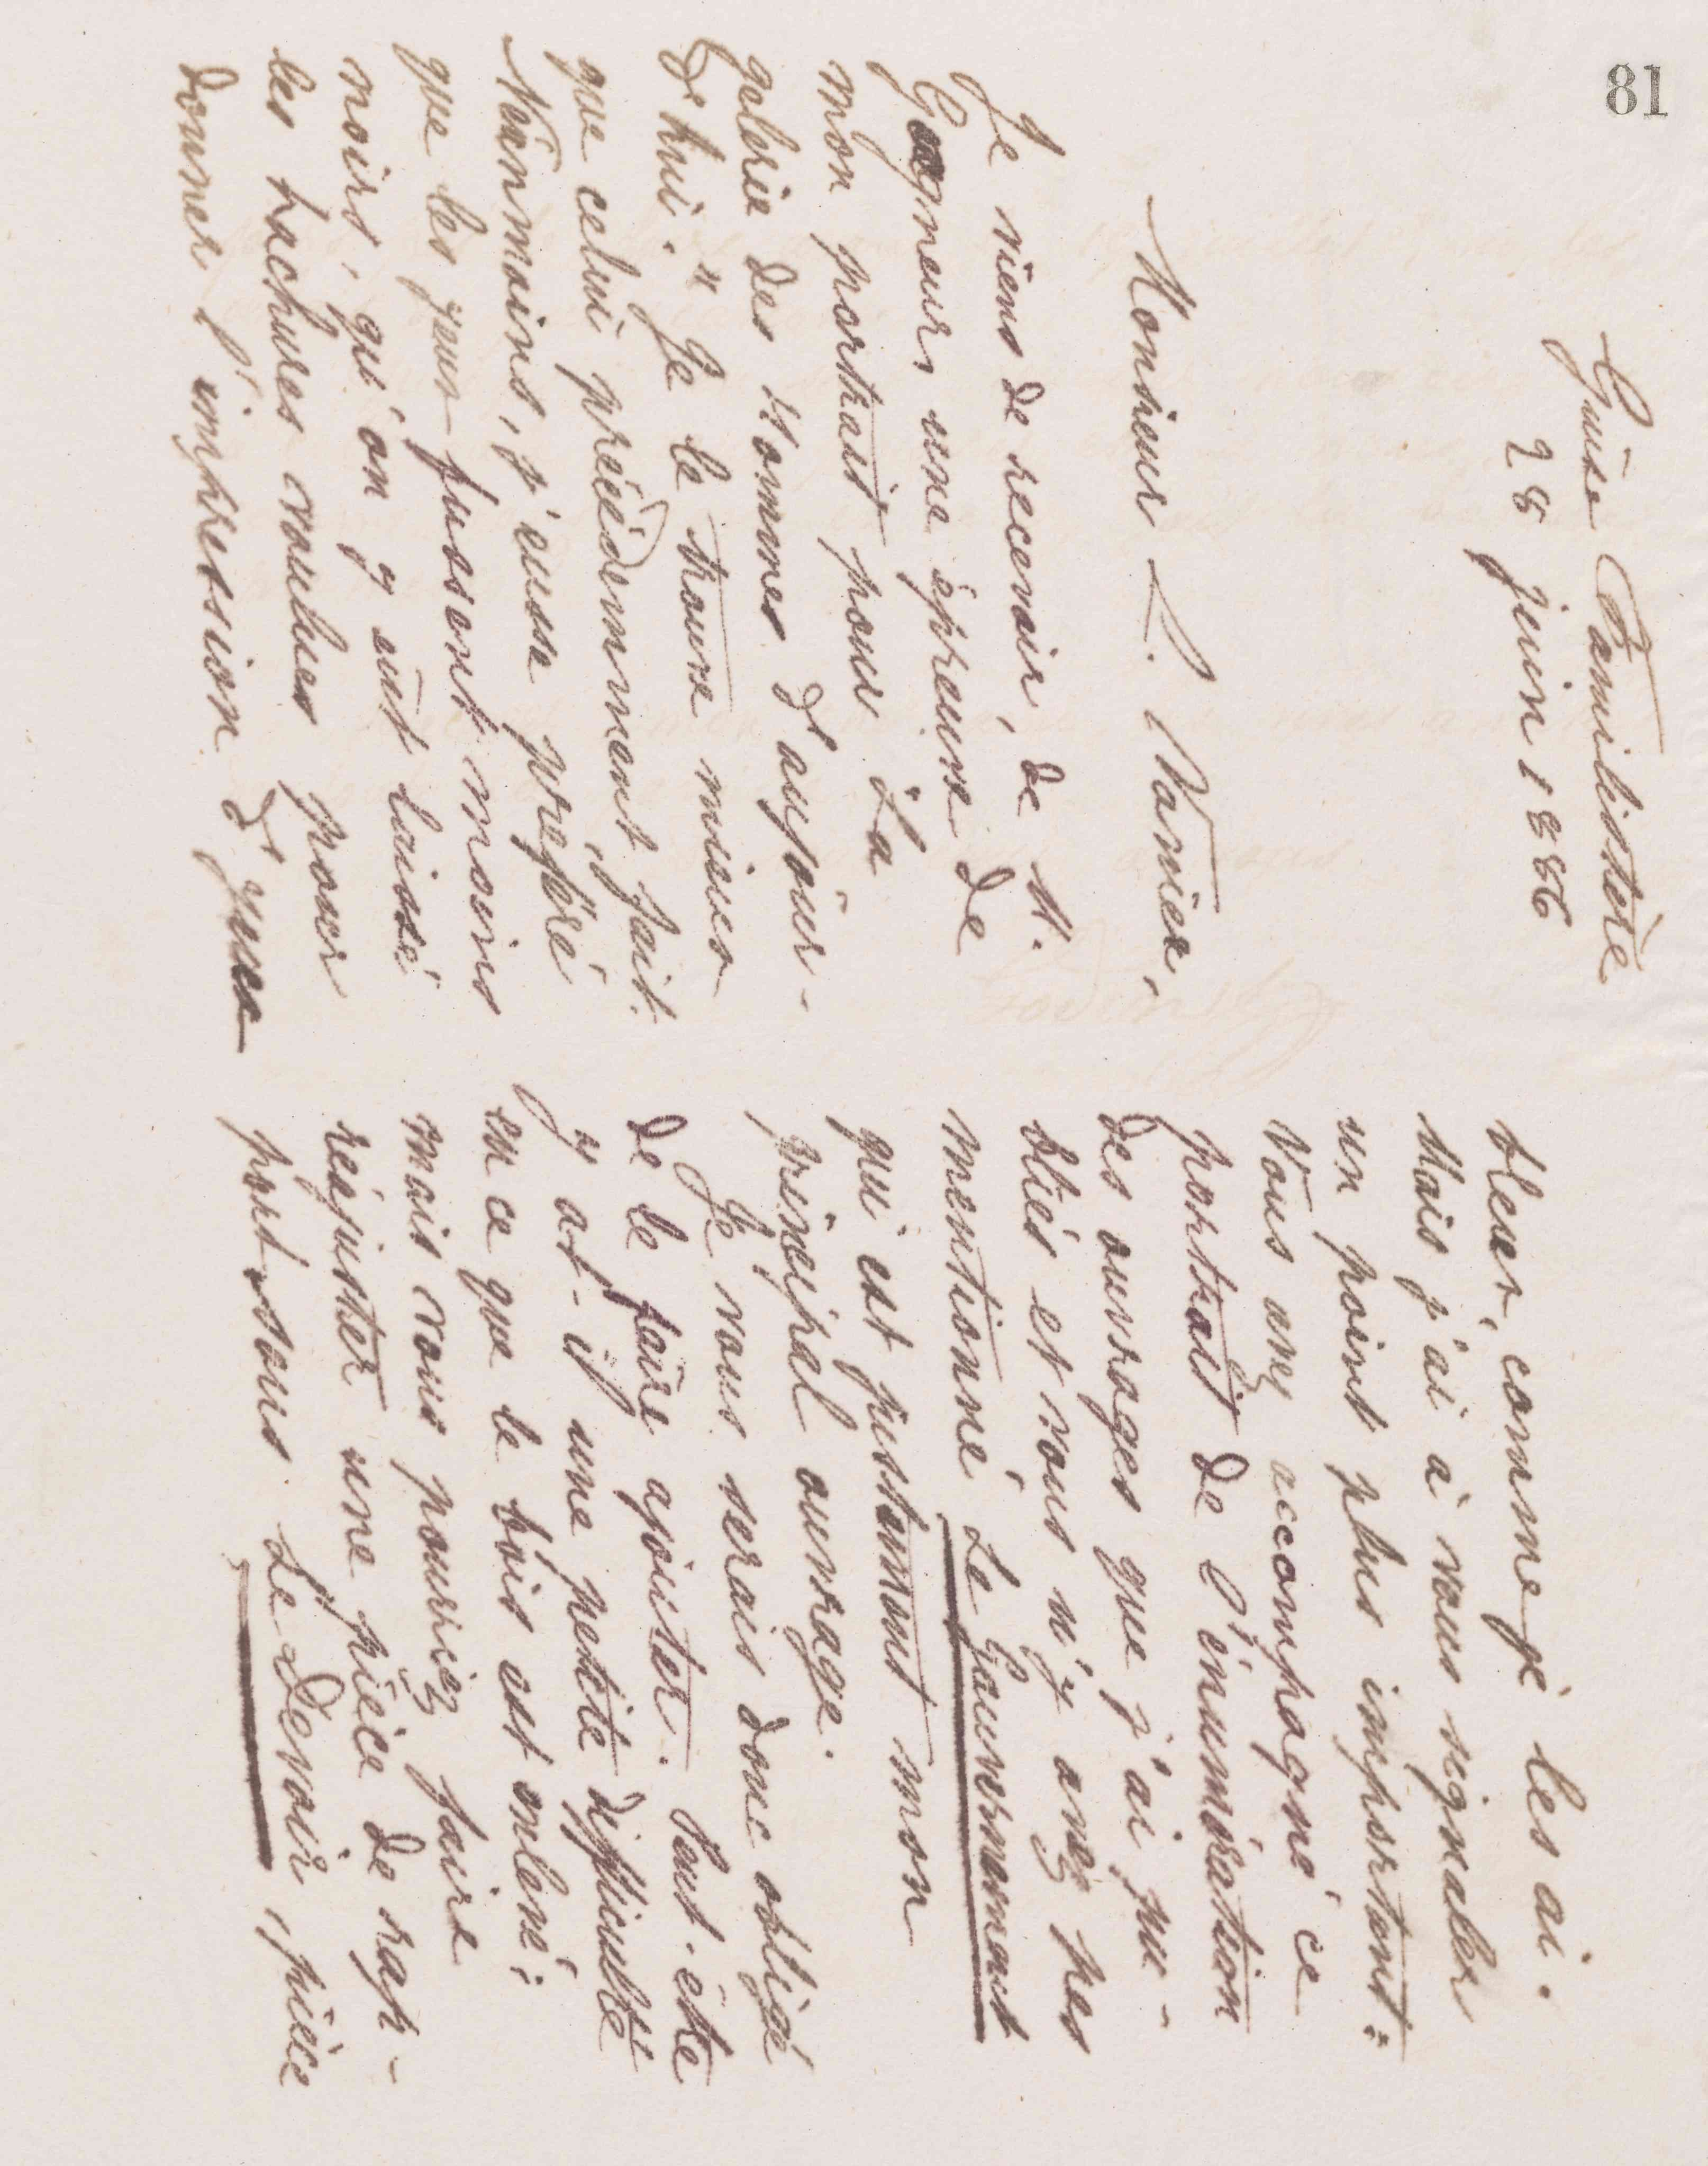 81
Guise Familistère
28 juin 1886
Monsieur L. Vanier,
Je viens de recevoir, de M.
Gagneur, une épreuve de
mon portrait pour "La
galerie des Hommes d'aujour-
d'hui." Je le trouve mieux
que celui précédemment fait.
Néanmoins, j'eusse préféré
que les yeux fussent moins
noirs, qu'on y eut laissé
les hachures voulues pour
donner l'impression d'yeux
bleus, comme je les ai.
Mais j'ai à vous signaler
un point plus important:
Vous avez accompagné ce
portrait de l'énumération
des ouvrages que j'ai pu-
bliés et vous n'y avez pas
mentionné Le Gouvernement
qui est justement mon
principal ouvrage.
Je vous serais donc obligé
de le faire ajouter. Peut-être
y at-il une petite difficulté
en ce que le bois est enlevé;
mais vous pourriez faire
réajuster une pièce de rap-
port sous Le Devoir, pièce